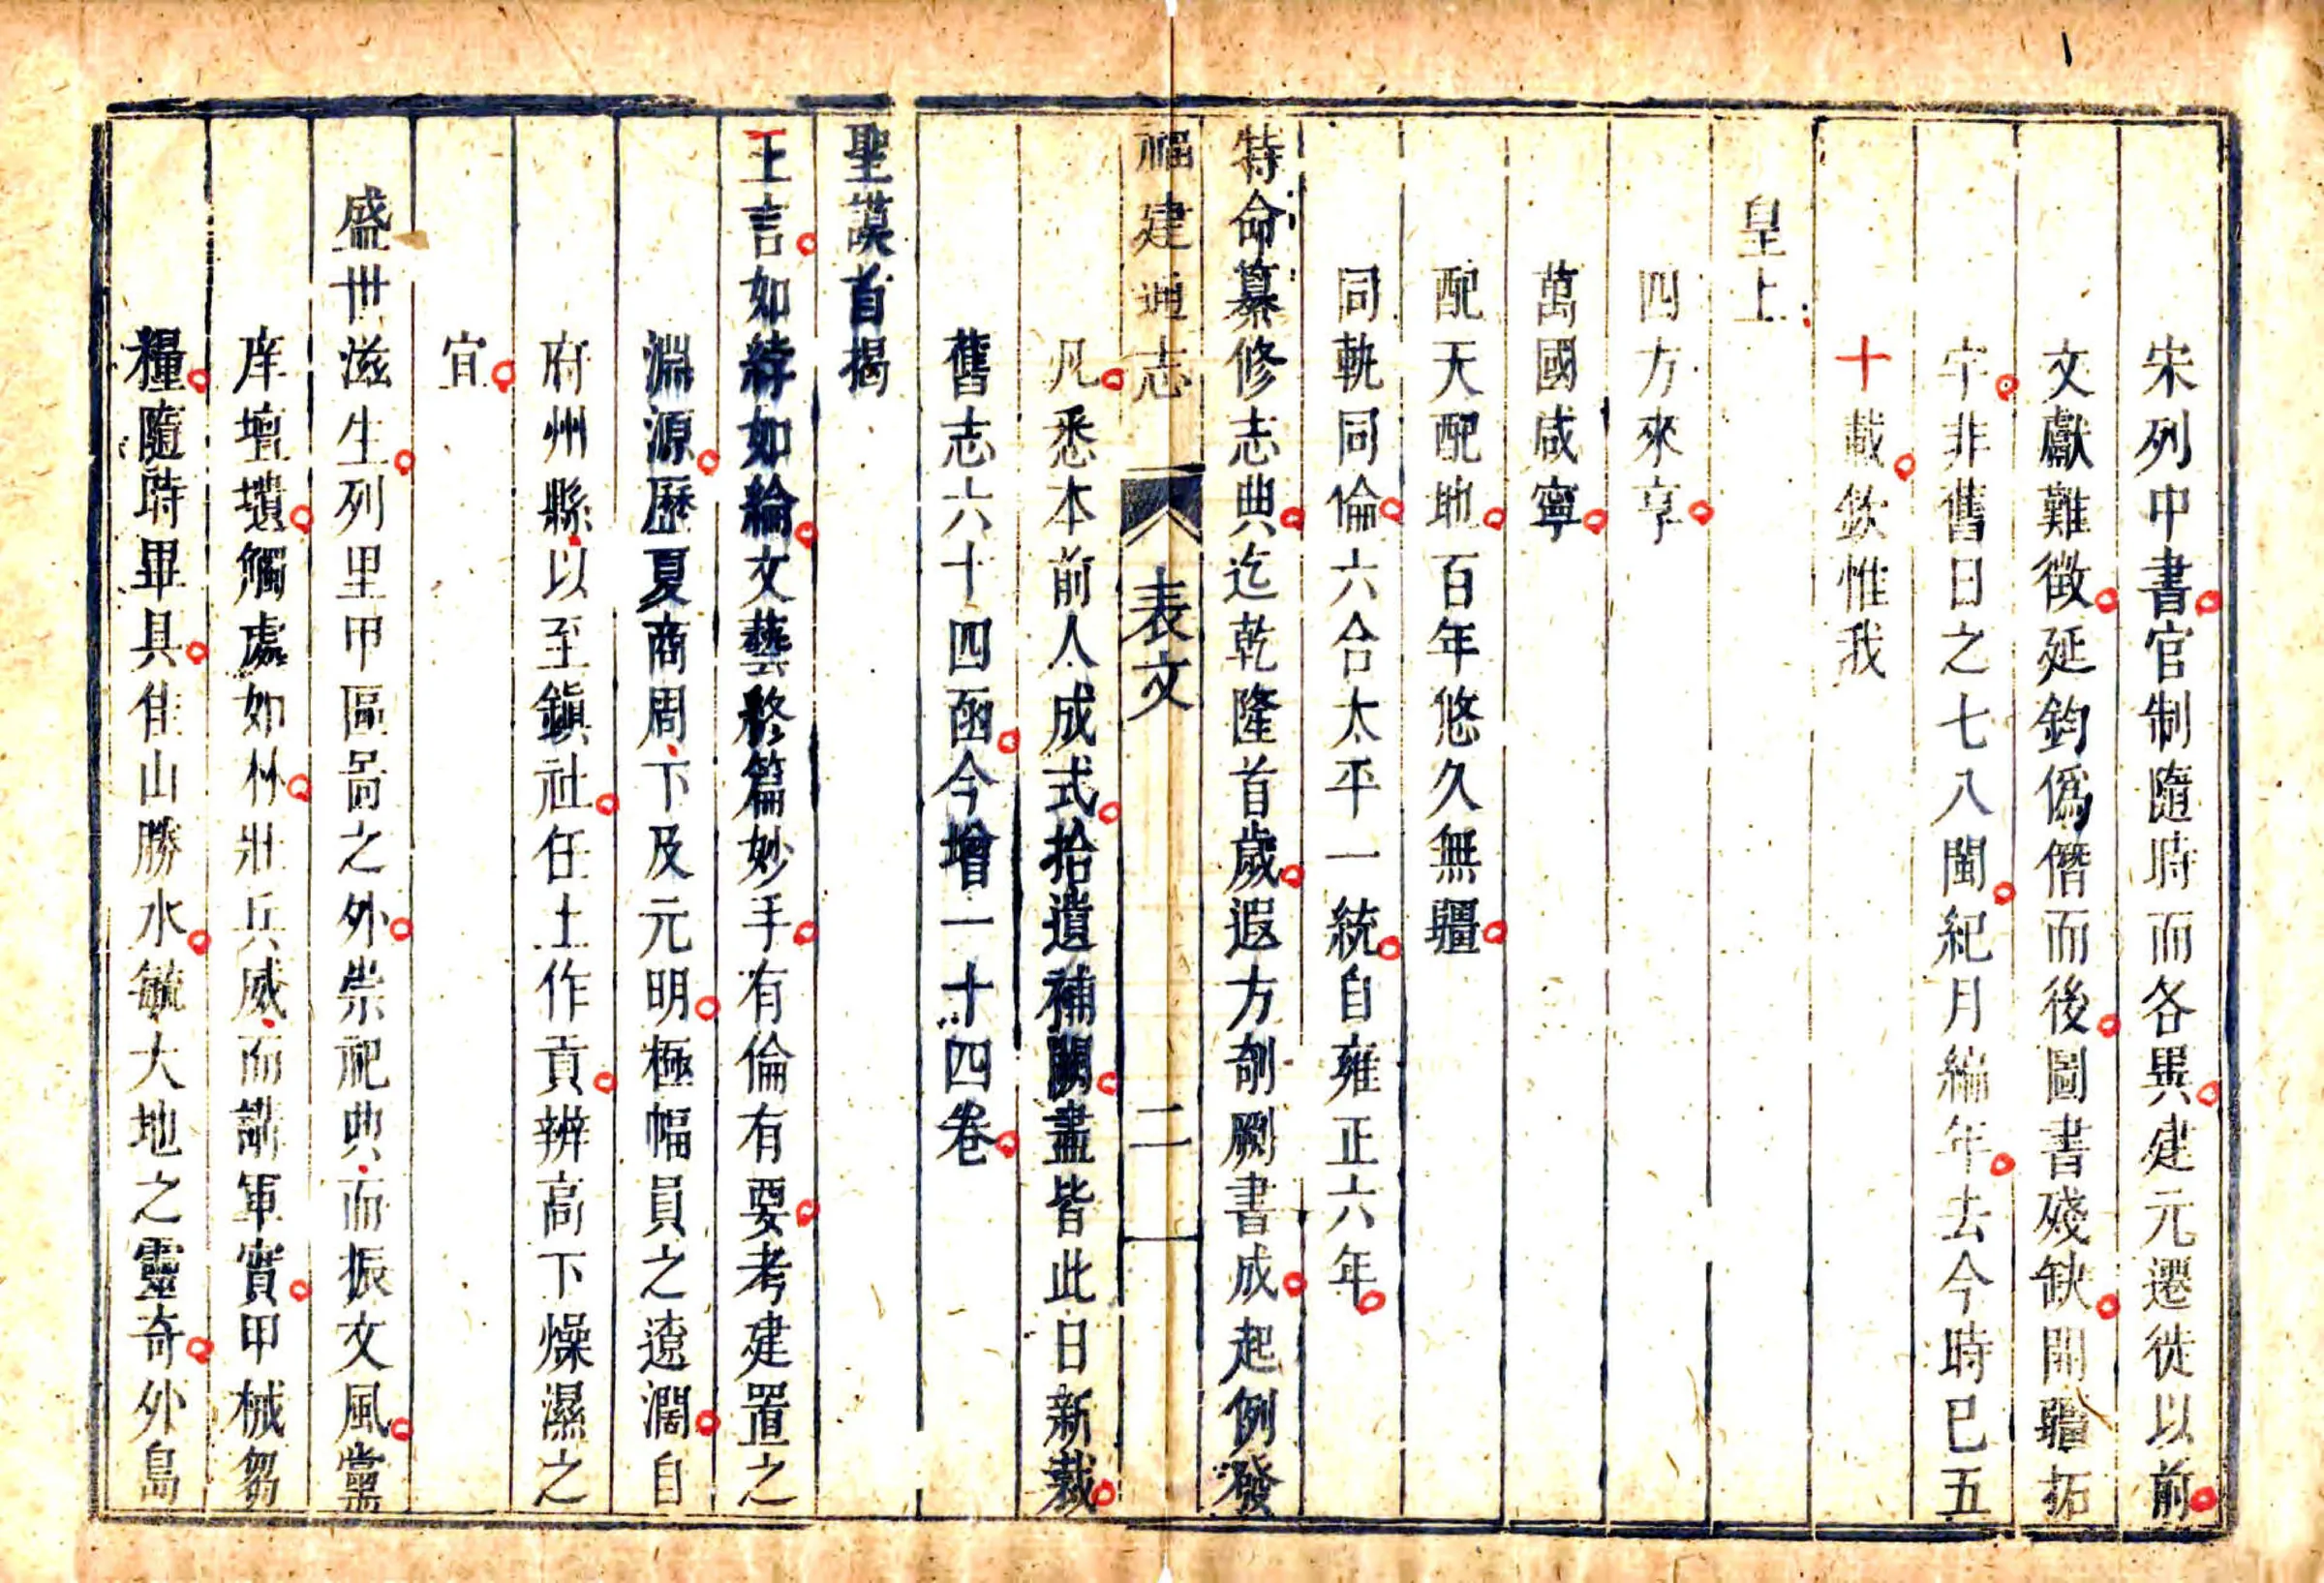 宋列中書官制隨時而各異建元遷徙以前
文獻難徵延鈞僞僭而後圖書殘缺開疆拓
宇非舊日之七八閩紀月編年去今時已五
十載欽惟我
皇上
四方來享
萬國咸寧
配天配地百年悠久無疆
同軌同倫六合太平一統自雍正六年
特命纂修志典迄乾隆首歲遐方剞劂書成起例發
福建通志 表文 二
凡悉本前人成式拾遺補闕盡皆此日新裁
舊志六十四函今增一十四卷
聖謨首揭
王言如綍如綸文藝終篇妙手有倫有要考建置之
淵源歷夏商周下及元明極幅員之遼濶自
府州縣以至鎮社任土作貢辨高下燥濕之
宜
盛世滋生列里甲區啚之外崇祀典而振文風黨
庠壇壝觸處如林壯兵威而講軍實甲械芻
糧隨時畢具佳山勝水毓大地之靈奇外島